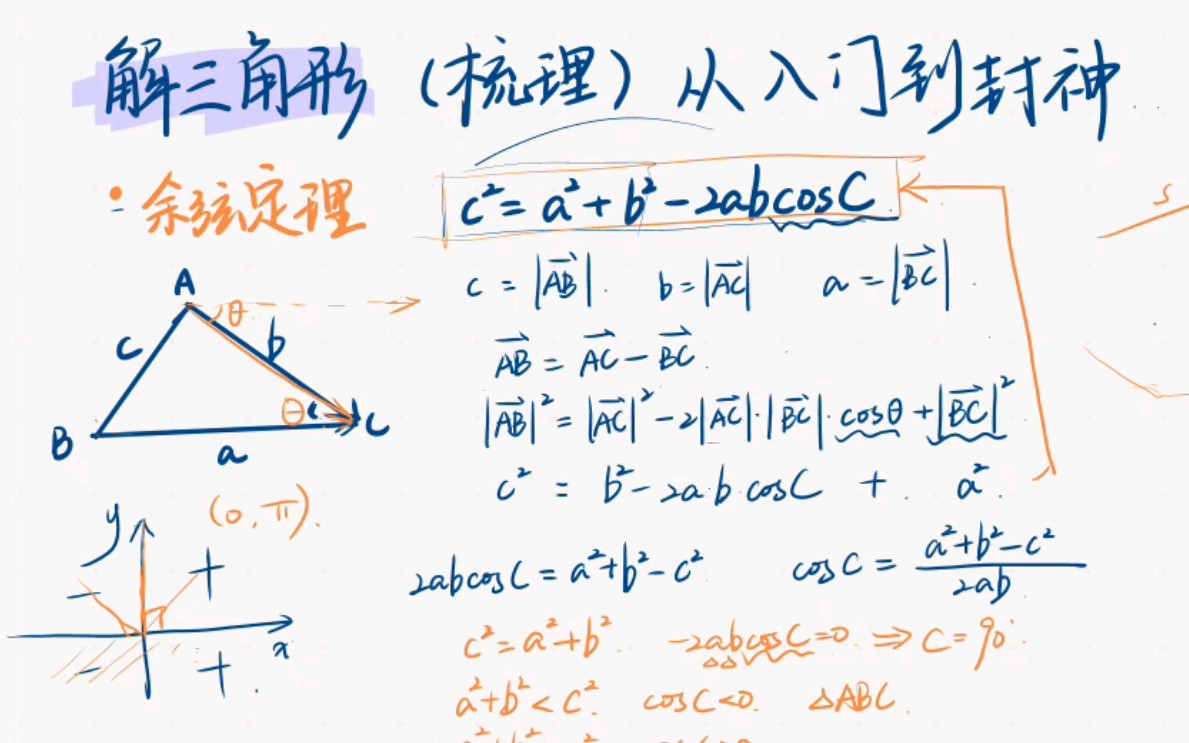 解三角形（梳理）从入门到封神
· 余弦定理
c² = a² + b² - 2abcosC
c = |AB→|. b = |AC→| a = |BC→|.
AB→ = AC→ - BC→.
|AB→|² = |AC→|² - 2|AC→|·|BC→|·cosθ + |BC→|²
c² = b² - 2a·b·cosC + a².
A
θ
c
b
θ
B
a
C
(0, π).
y
- +
x
- +
2abcosC = a² + b² - c² cosC = (a² + b² - c²)/2ab
c² = a² + b². -2abcosC = 0. ⇒ C = 90°.
a² + b² < c². cosC < 0. △ABC.